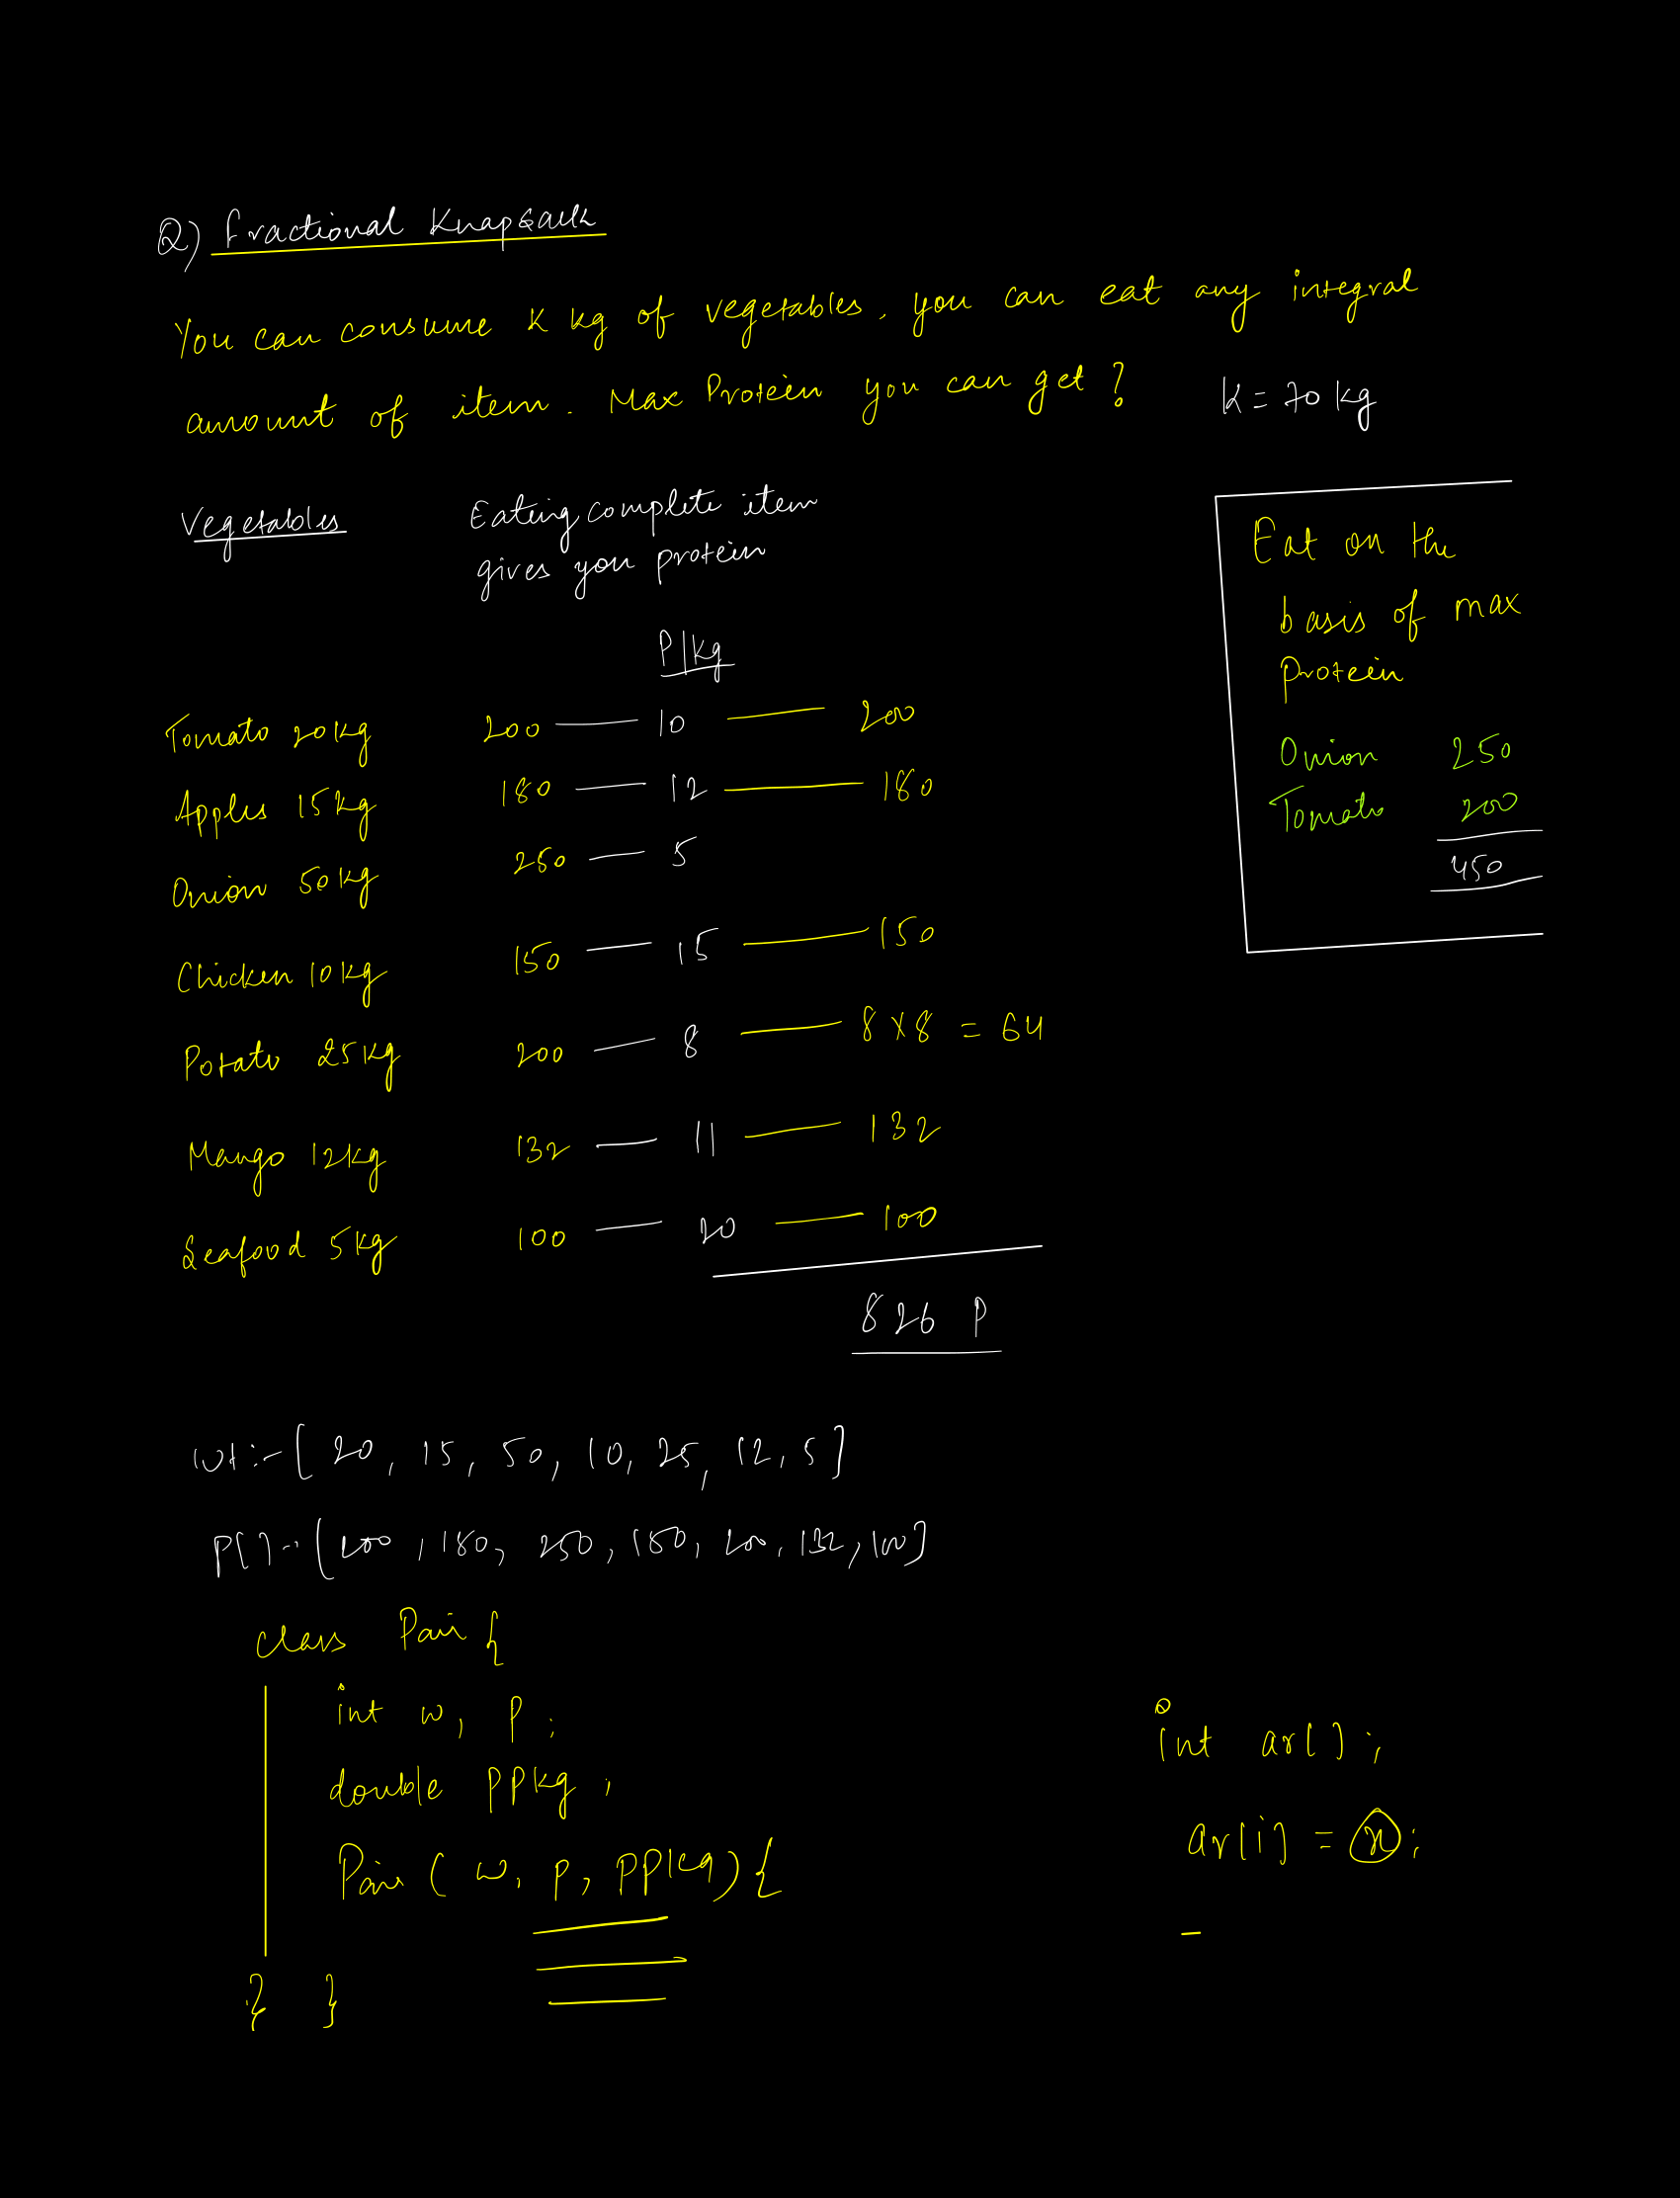 Q) Fractional Knapsack
You can consume K kg of vegetables. you can eat any integral
amount of item. Max Protein you can get?
K = 70 kg
Vegetables
Eating complete item
gives you protein
P/kg
Tomato 20kg 200 — 10 — 200
Apples 15kg 180 — 12 — 180
Onion 50kg 250 — 5
Chicken 10kg 150 — 15 — 150
Potato 25kg 200 — 8 — 8 X 8 = 64
Mango 12kg 132 — 11 — 132
Seafood 5kg 100 — 20 — 100
826 P
Eat on the
basis of max
protein
Onion 250
Tomato 200
450
wt :- [ 20, 15, 50, 10, 25, 12, 5 ]
P[] :- [ 200, 180, 250, 150, 200, 132, 100 ]
class Pair {
int w, P;
double PPkg;
Pair ( w, p, PPkg) {
} }
int ar[];
ar[i] = x;
–